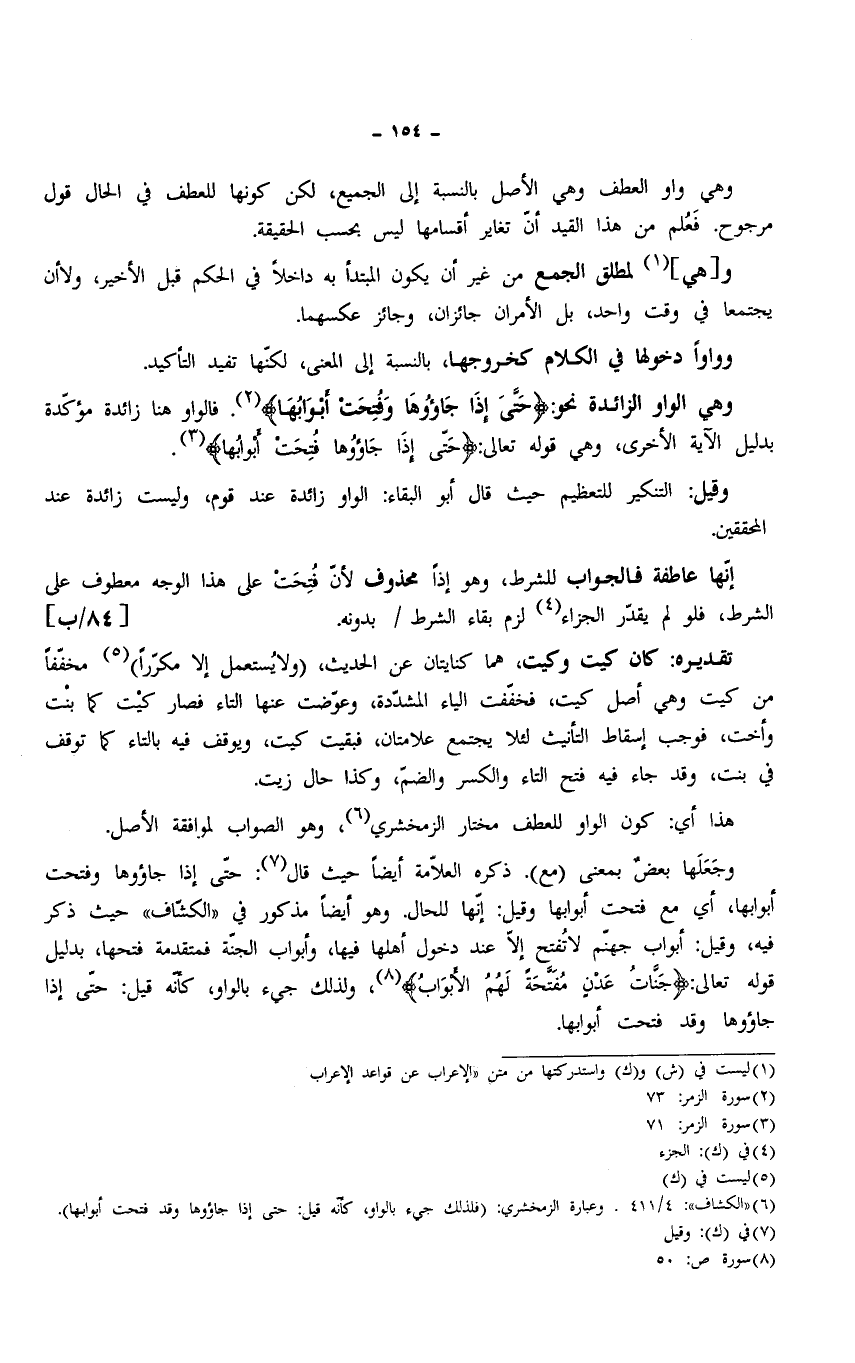 - ١٥٤ -
وهي واو العطف وهي الأصل بالنسبة إلى الجميع، لكن كونها للعطف في الحال قول
مرجوح. فَعُلم من هذا القيد أنّ تغاير أقسامها ليس بحسب الحقيقة.
و[هي](١) لمطلق الجمع من غير أن يكون المبتدأ به داخلاً في الحكم قبل الأخير، ولاأن
يجتمعا في وقت واحد، بل الأمران جائزان، وجائز عكسهما.
وواواً دخولها في الكلام كخروجها، بالنسبة إلى المعنى، لكنّها تفيد التأكيد.
وهي الواو الزائدة نحو:﴿حَتَّىَ إِذَا جَاؤُوهَا وَفُتِحَتْ أَبْوَابُهَا﴾(٢). فالواو هنا زائدة مؤكّدة
بدليل الآية الأخرى، وهي قوله تعالى:﴿حَتّى إِذَا جَاؤُوُها فُتِحَتْ أَبْوابُها﴾(٣).
وقيل: التنكير للتعظيم حيث قال أبو البقاء: الواو زائدة عند قوم، وليست زائدة عند
المحققين.
إنّها عاطفة فالجواب للشرط، وهو إذاً محذوف لأنّ فُتِحَتْ على هذا الوجه معطوف على
الشرط، فلو لم يقدّر الجزاء(٤) لزم بقاء الشرط / بدونه. [٨٤/ب]
تقديره: كان كيت وكيت، هما كنايتان عن الحديث، (ولايُستعمل إلا مكرّراً)(٥) مخفّفاً
من كيت وهي أصل كيت، فخفّفت الياء المشدّدة، وعوّضت عنها التاء فصار كيْت كما بنْت
وأخت، فوجب إسقاط التأنيث لئلا يجتمع علامتان، فبقيت كيت، ويوقف فيه بالتاء كما توقف
في بنت، وقد جاء فيه فتح التاء والكسر والضمّ، وكذا حال زيت.
هذا أي: كون الواو للعطف مختار الزمخشري(٦)، وهو الصواب لموافقة الأصل.
وجَعَلَها بعضٌ بمعنى (مع). ذكره العلاّمة أيضاً حيث قال(٧): حتّى إذا جاؤوها وفتحت
أبوابها، أي مع فتحت أبوابها وقيل: إنّها للحال. وهو أيضاً مذكور في «الكشّاف» حيث ذكر
فيه، وقيل: أبواب جهنّم لاتُفتح إلاّ عند دخول أهلها فيها، وأبواب الجنّة فمتقدمة فتحها، بدليل
قوله تعالى:﴿جَنَّاتُ عَدْنٍ مُفَتَّحَةً لَهُمُ الأَبْوَابُ﴾(٨)، ولذلك جيء بالواو، كأنّه قيل: حتّى إذا
جاؤوها وقد فتحت أبوابها.
(١)ليست في (ش) و(ك) واستدركتها من متن «الإعراب عن قواعد الإعراب
(٢)سورة الزمر: ٧٣
(٣)سورة الزمر: ٧١
(٤)في (ك): الجزء
(٥)ليست في (ك)
(٦)«الكشاف»: ٤١١/٤ . وعبارة الزمخشري: (فلذلك جيء بالواو، كأنّه قيل: حتى إذا جاؤوها وقد فتحت أبوابها).
(٧)في (ك): وقيل
(٨)سورة ص: ٥٠